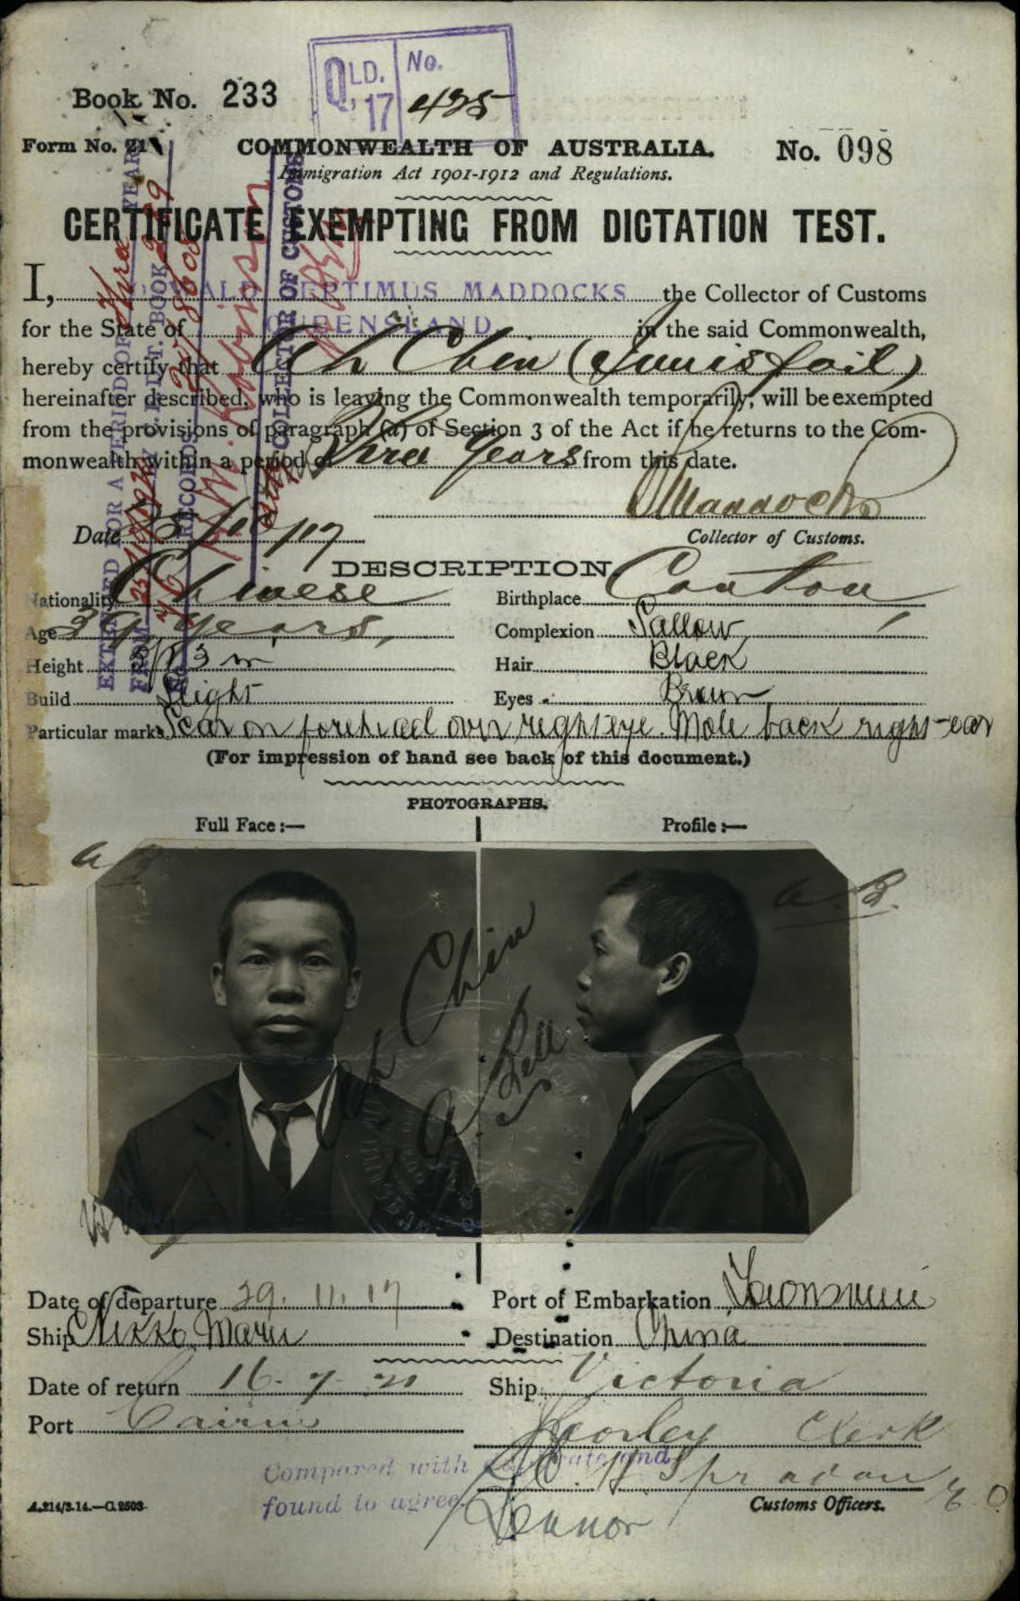 QLD. 17 No. 425
Book No. 233
Form No. 21
COMMONWEALTH OF AUSTRALIA. No. 098
Immigration Act 1901-1912 and Regulations.
CERTIFICATE EXEMPTING FROM DICTATION TEST.
I, DONALD SEPTIMUS MADDOCKS the Collector of Customs
for the State of QUEENSLAND in the said Commonwealth,
hereby certify that Ah Chin (Innisfail)
hereinafter described, who is leaving the Commonwealth temporarily, will be exempted
from the provisions of paragraph (a) of Section 3 of the Act if he returns to the Com-
monwealth within a period of Three Years from this date.
Maddocks
Date 25/10/17 Collector of Customs.
EXTENDED FOR A PERIOD OF YEARS
FROM
RECORDS
COLLECTOR OF CUSTOMS
DESCRIPTION
Nationality Chinese Birthplace Canton
Age 39 years, Complexion Sallow
Height Hair Black
Build Slight Eyes Brown
Particular marks Scar on forehead over right eye. Mole back right ear
(For impression of hand see back of this document.)
PHOTOGRAPHS.
Full Face:— Profile:—
A.B. A.B.
Ah Chin
A Bell
Date of departure 29. 11. 17 Port of Embarkation Townsville
Ship Nikko Maru Destination China
Date of return 16-7-20 Ship Victoria
Port Cairns
Clerk
Compared with duplicate and
found to agree.
A.214/3.14.—C.2503. Customs Officers.